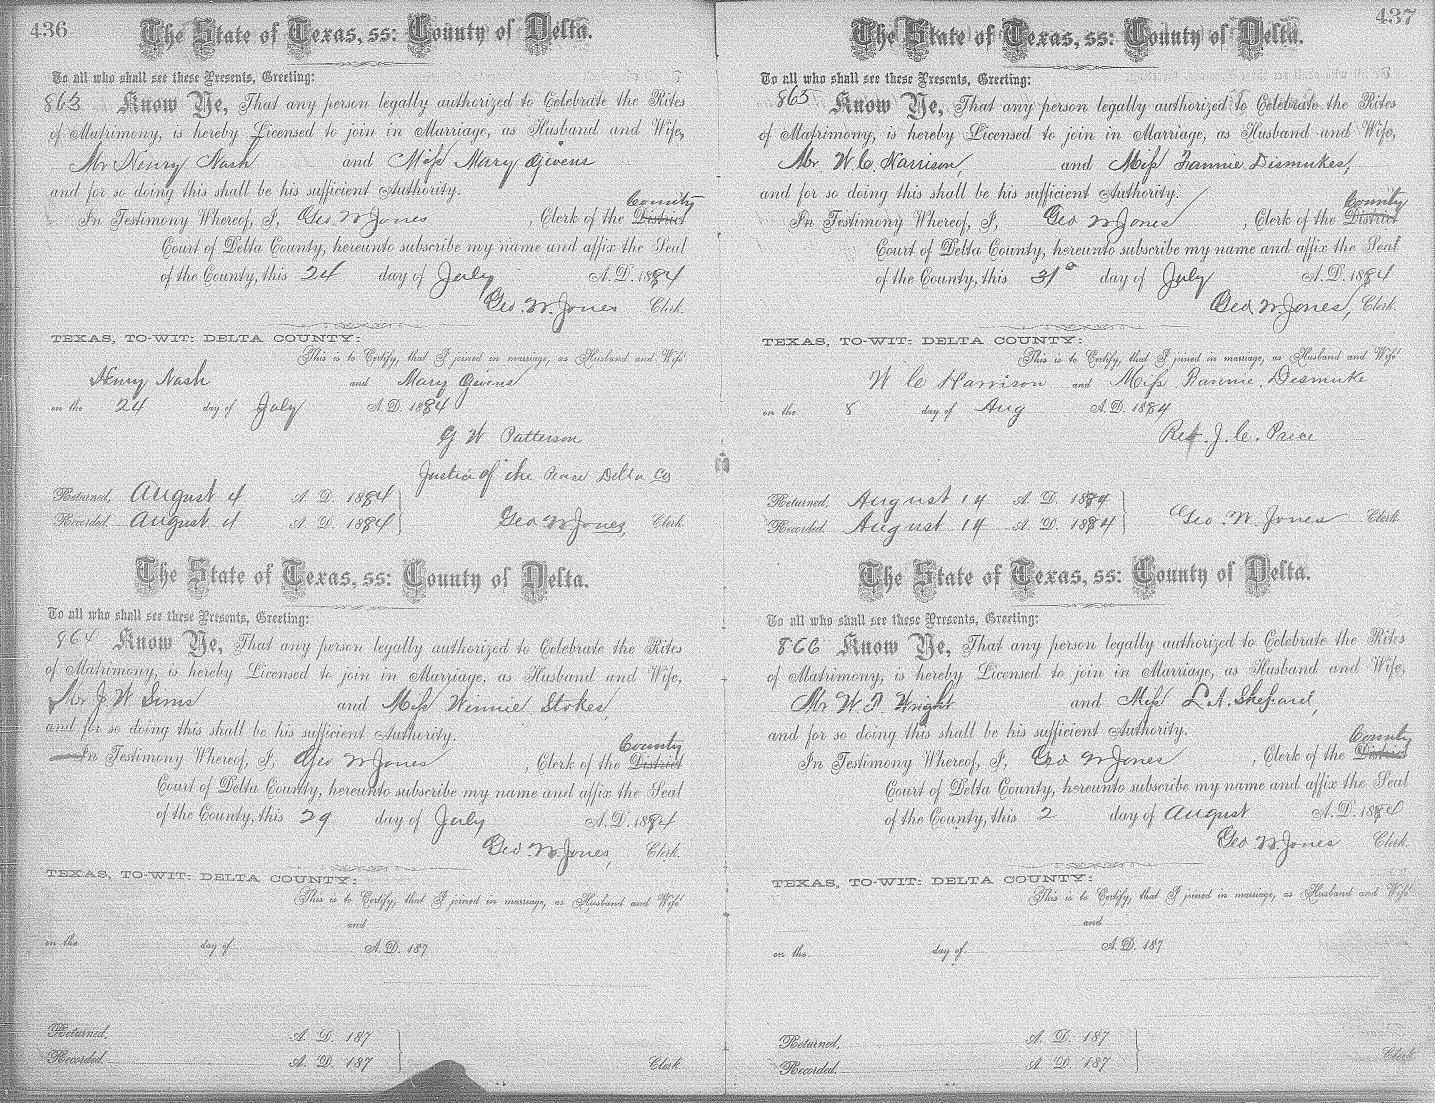 436
The State of Texas, ss: County of Delta.
To all who shall see these Presents, Greeting:
863 Know Ye, That any person legally authorized to Celebrate the Rites
of Matrimony, is hereby Licensed to join in Marriage, as Husband and Wife,
Mr Henry Nash and Miss Mary Givens
and for so doing this shall be his sufficient Authority.
County
In Testimony Whereof, I, Geo. W Jones , Clerk of the District
Court of Delta County, hereunto subscribe my name and affix the Seal
of the County, this 24 day of July A. D. 1884
Geo. W. Jones Clerk.
TEXAS, TO-WIT: DELTA COUNTY:
This is to Certify, that I joined in marriage, as Husband and Wife
Henry Nash and Mary Givens
on the 24 day of July A. D. 1884
G W Patterson
Justice of the Peace Delta Co
Returned, August 4 A. D. 1884
Recorded August 4 A. D. 1884 Geo W Jones, Clerk
The State of Texas, ss: County of Delta.
To all who shall see these Presents, Greeting:
864 Know Ye, That any person legally authorized to Celebrate the Rites
of Matrimony, is hereby Licensed to join in Marriage, as Husband and Wife,
Mr J. W Sims and Miss Winnie Stokes,
and for so doing this shall be his sufficient Authority.
County
In Testimony Whereof, I, Geo W Jones , Clerk of the District
Court of Delta County, hereunto subscribe my name and affix the Seal
of the County, this 29 day of July A. D. 1884
Geo. W. Jones, Clerk.
TEXAS, TO-WIT: DELTA COUNTY:
This is to Certify, that I joined in marriage, as Husband and Wife
and
on the day of A. D. 187
Returned, A. D. 187
Recorded A. D. 187 Clerk
437
The State of Texas, ss: County of Delta.
To all who shall see these Presents, Greeting:
865 Know Ye, That any person legally authorized to Celebrate the Rites
of Matrimony, is hereby Licensed to join in Marriage, as Husband and Wife,
Mr W. C. Harrison, and Miss Fannie Dismukes,
and for so doing this shall be his sufficient Authority.
County
In Testimony Whereof, I, Geo W Jones , Clerk of the District
Court of Delta County, hereunto subscribe my name and affix the Seal
of the County, this 31st day of July A. D. 1884
Geo W Jones, Clerk.
TEXAS, TO-WIT: DELTA COUNTY:
This is to Certify, that I joined in marriage, as Husband and Wife
W C Harrison and Miss Fannie Desmuke
on the 8 day of Aug A. D. 1884
Rev. J. C. Price
Returned, August 14 A. D. 1884
Recorded August 14 A. D. 1884 Geo. W. Jones Clerk
The State of Texas, ss: County of Delta.
To all who shall see these Presents, Greeting:
866 Know Ye, That any person legally authorized to Celebrate the Rites
of Matrimony, is hereby Licensed to join in Marriage, as Husband and Wife,
Mr W F Wright and Miss L. A. Shepard,
and for so doing this shall be his sufficient Authority.
County
In Testimony Whereof, I, Geo W Jones , Clerk of the District
Court of Delta County, hereunto subscribe my name and affix the Seal
of the County, this 2 day of August A. D. 1884
Geo W Jones Clerk.
TEXAS, TO-WIT: DELTA COUNTY:
This is to Certify, that I joined in marriage, as Husband and Wife
and
on the day of A. D. 187
Returned, A. D. 187
Recorded, A. D. 187 Clerk